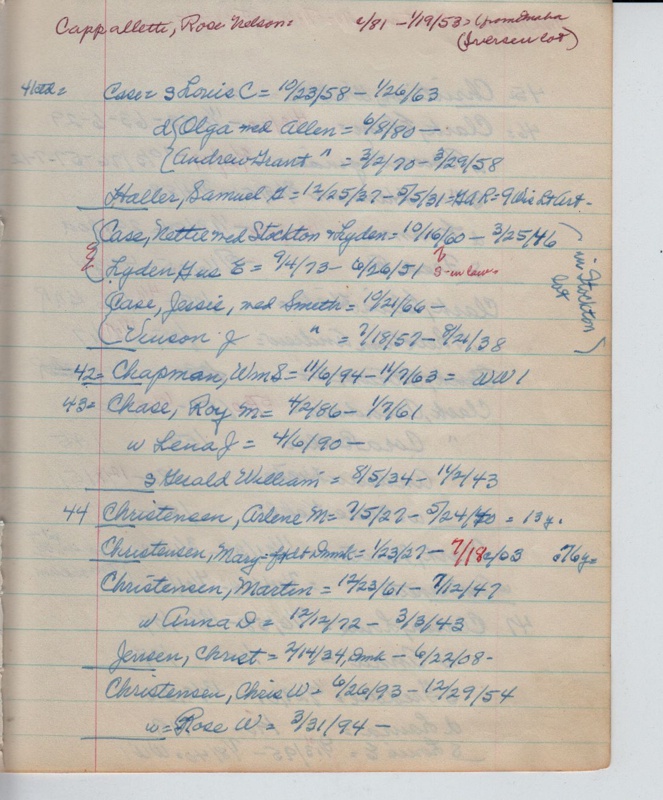 Cappalletti, Rose Nelson = 2/81 - 1/19/53 = from Omaha
(Iversen lot)
41 Case = s Louis C = 10/23/58 - 1/26/63
d { Olga med Allen = 6/8/80 -
{ Andrew Grant " = 3/2/70 - 3/29/58
Haller, Samuel G = 12/25/37 - 5/5/31 = GAR = 9 Wis Lt Art -
{ Case, Nettie med Stockton & Lyden = 10/16/60 - 3/25/46
Lyden Gus E = 9/4/73 - 6/26/51 s-in law =
in Stockton lot
Case, Jessie, med Smith = 10/21/66 -
{ Vinson J " = 7/18/57 - 8/21/38
42 = Chapman, Wm S = 11/6/94 - 11/7/63 = WW1
43 = Chase, Roy M = 4/2/86 - 1/7/61
w Lena J = 4/6/90 -
s Gerald William = 8/5/34 - 1/2/43
44 Christensen, Arlene M = 7/5/27 - 5/24/40 = 13 y.
Christensen, Mary = Dnmk = 1/23/27 - 7/18/03 76y =
Christensen, Martin = 12/23/61 - 7/12/47
w Anna D = 12/12/72 - 3/3/43
Jensen, Christ = 2/14/34, Dmk - 6/22/08 -
Christensen, Chris W = 6/26/93 - 12/29/54
w = Rose W = 3/31/94 -